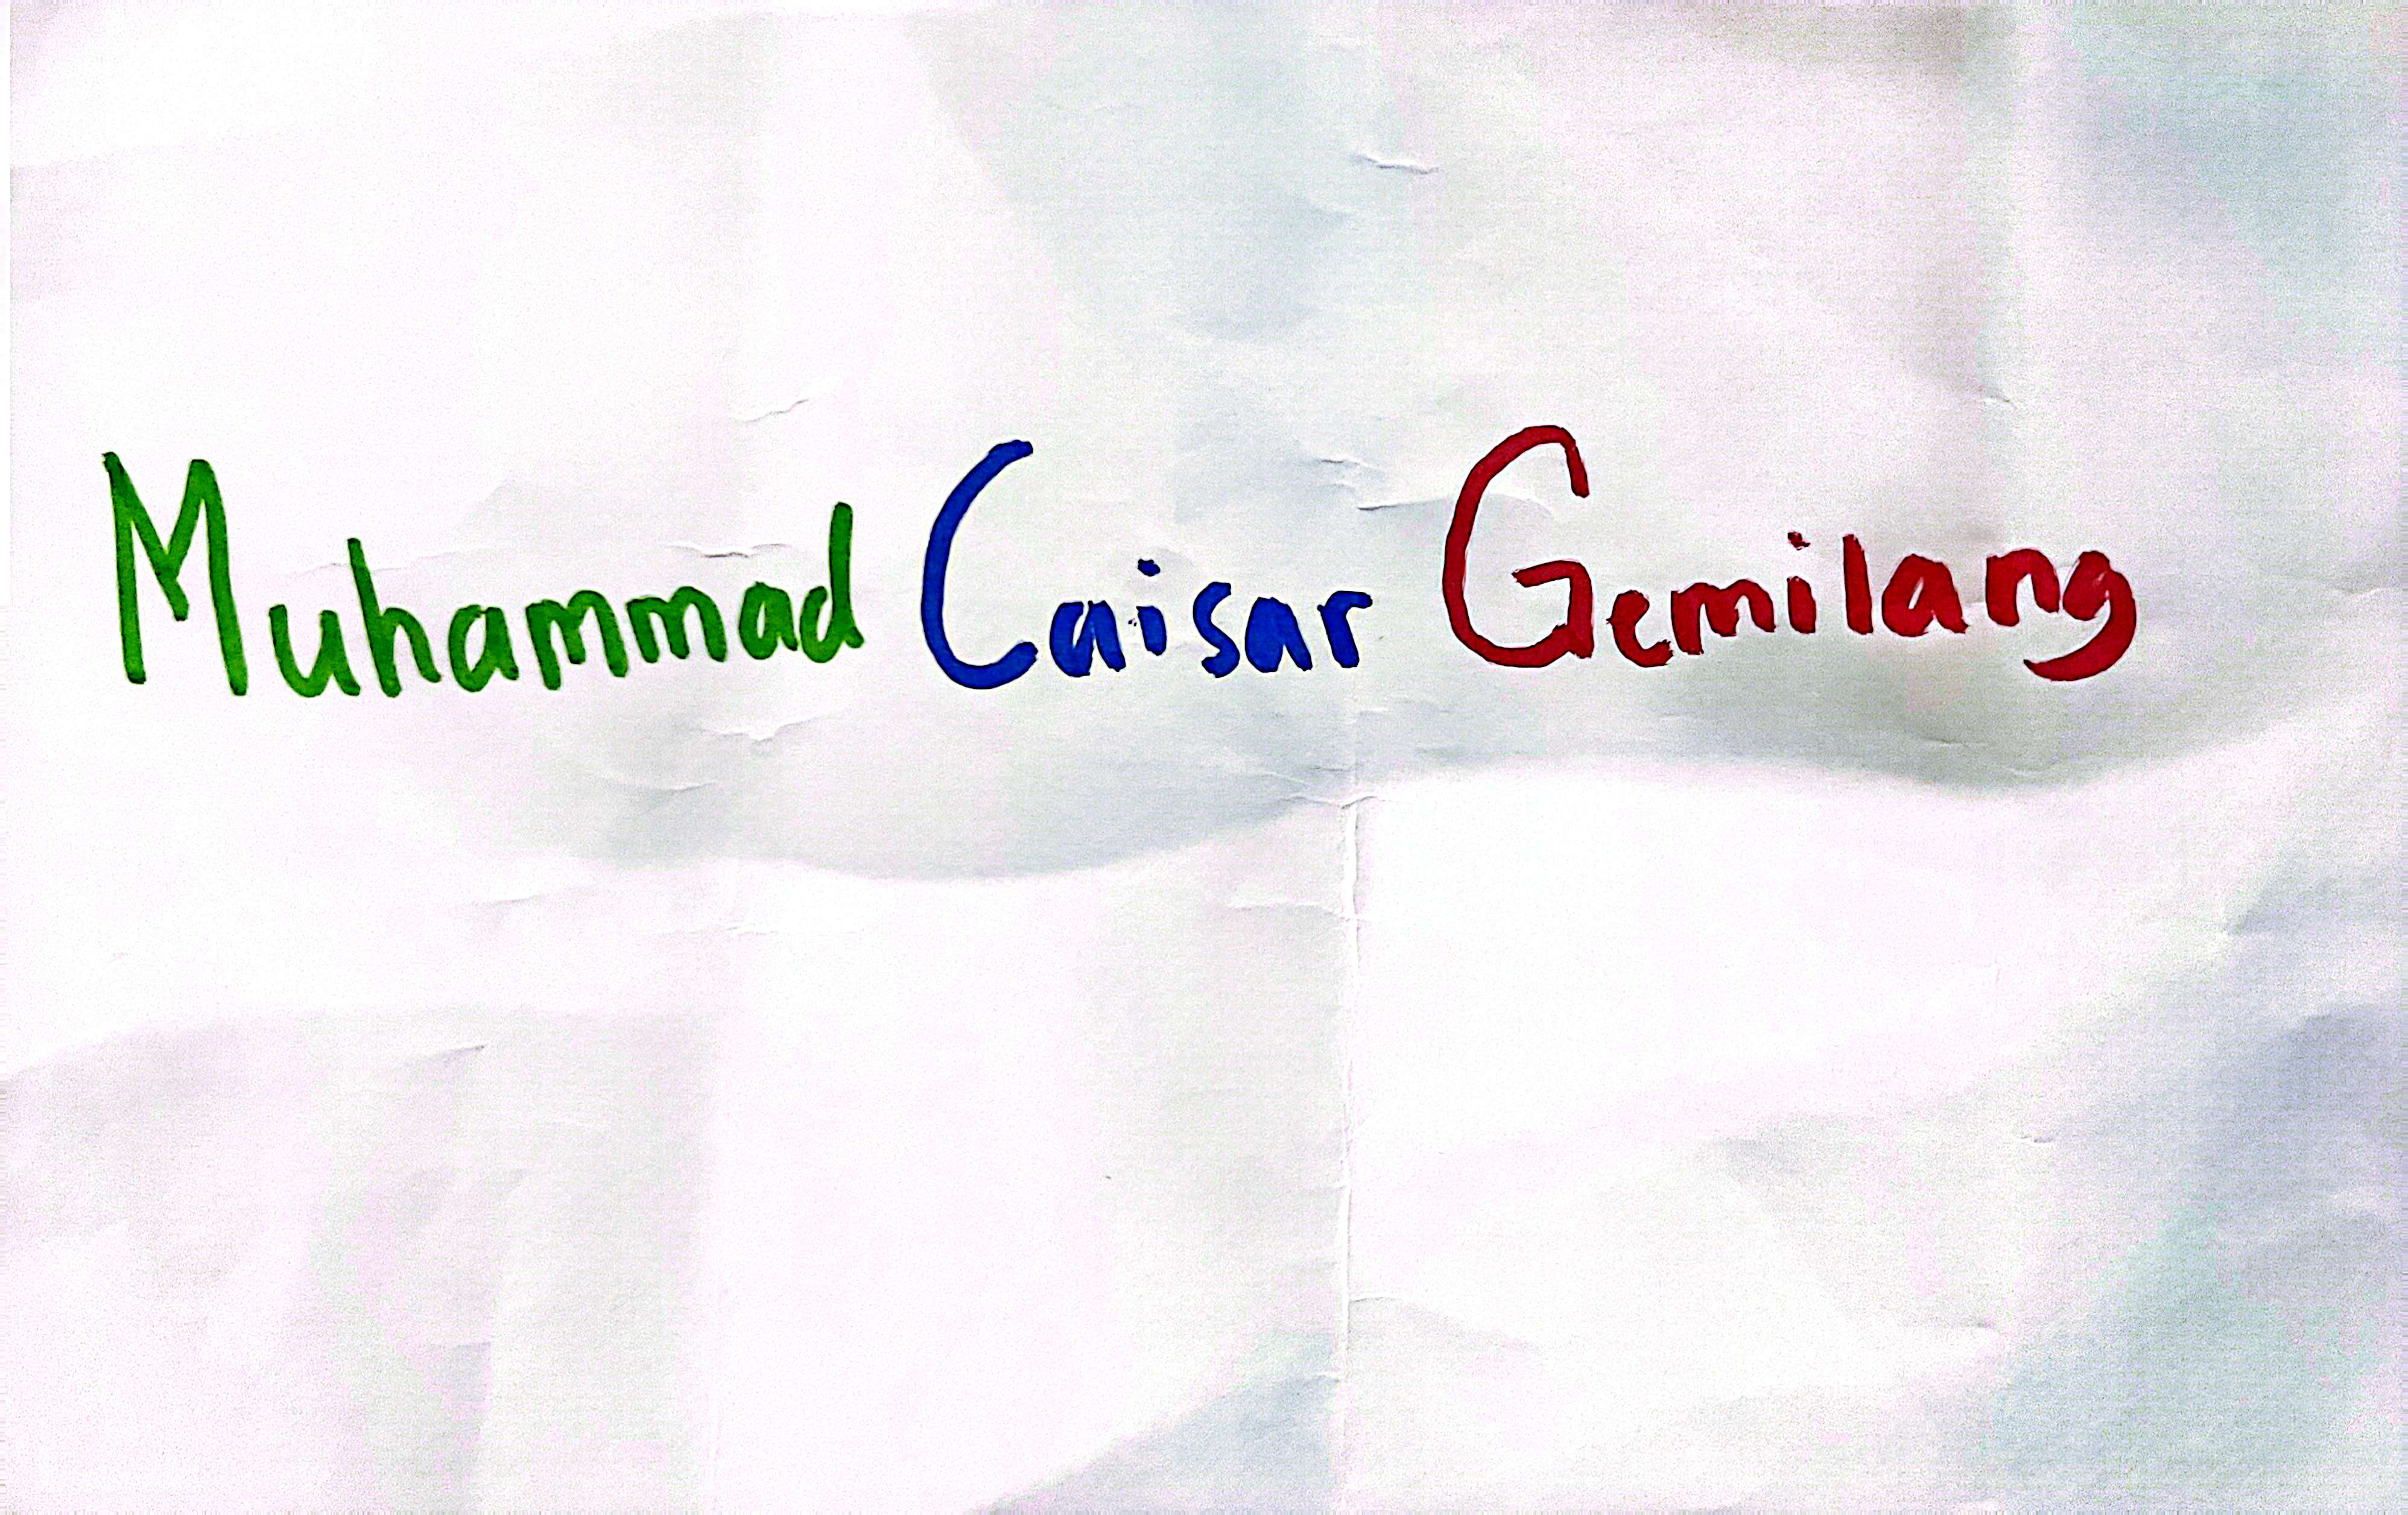 Muhammad Caisar Gemilang